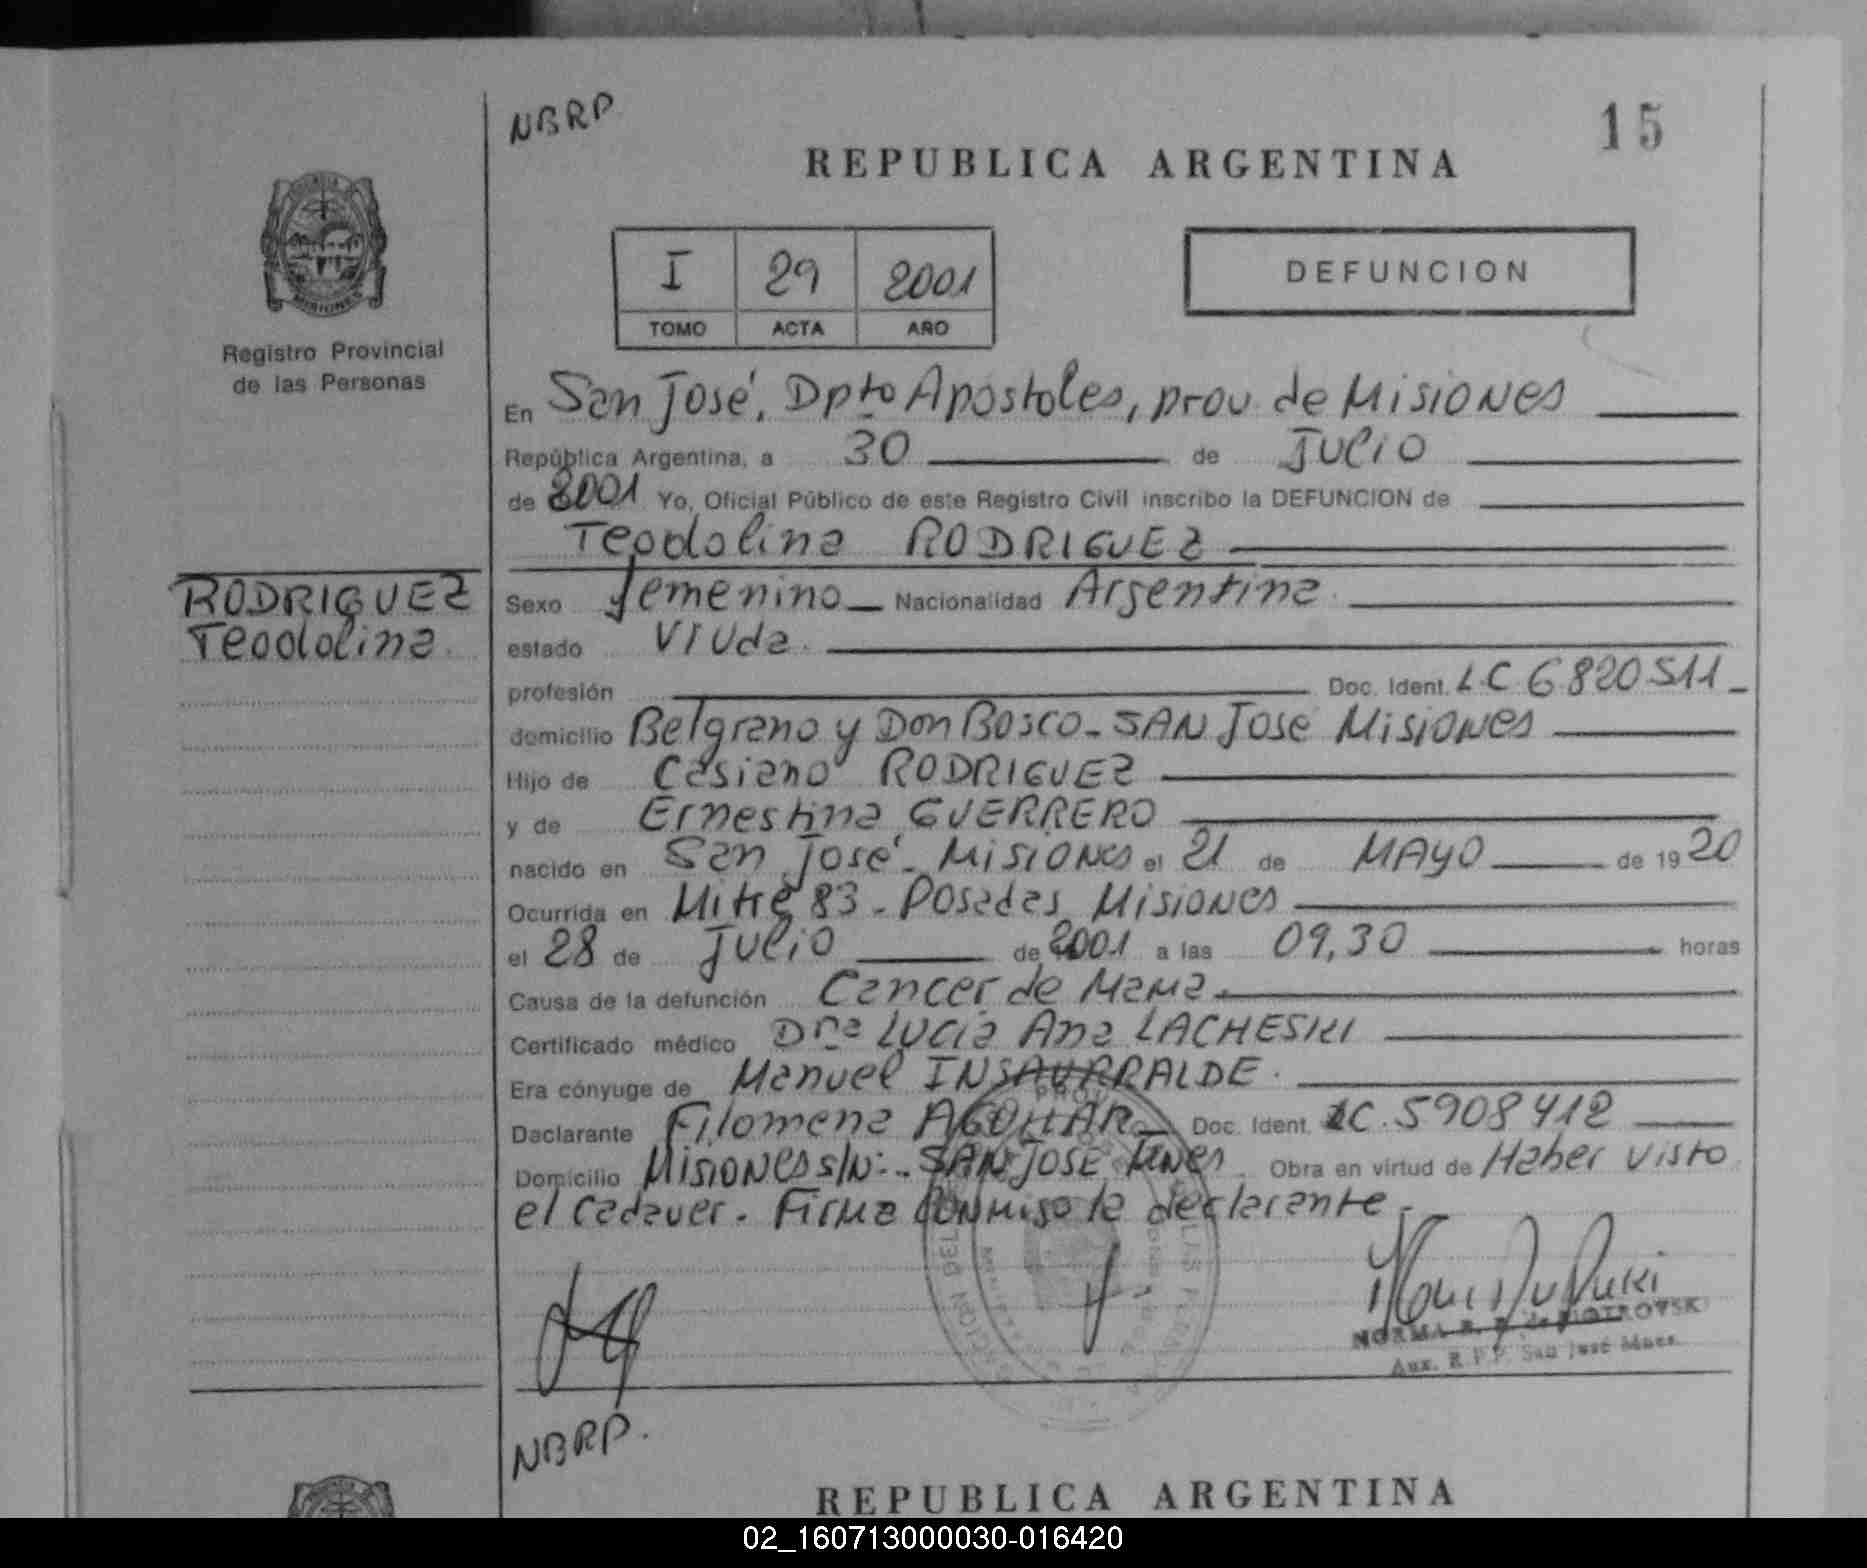 NBRP
15
REPUBLICA ARGENTINA
I 29 2001
TOMO ACTA AÑO
DEFUNCION
MISIONES
Registro Provincial
de las Personas
En San José, Dpto Apostoles, prov. de Misiones
República Argentina, a 30 de Julio
de 2001 Yo, Oficial Público de este Registro Civil inscribo la DEFUNCION de
Teodolina RODRIGUEZ
RODRIGUEZ
Teodolina.
Sexo femenino Nacionalidad Argentina.
estado Viuda.
profesión Doc. Ident. LC 6820511
domicilio Belgrano y Don Bosco - SAN José Misiones
Hijo de Casiano RODRIGUEZ
y de Ernestina GUERRERO
nacido en San José - Misiones el 21 de MAYO de 1920
Ocurrida en Mitre 83 - Posadas Misiones
el 28 de Julio de 2001 a las 09,30 horas
Causa de la defunción Cancer de Mama
Certificado médico Dra Lucia Ana LACHESKI
Era cónyuge de Manuel INSAURRALDE.
Declarante Filomena AGUILAR Doc. Ident. LC. 5908412
Domicilio Misiones s/N: SAN JOSE Mnes Obra en virtud de Haber visto
el Cadaver. Firma conmigo la declarante.
NORMA B. de PIOTROVSKI
Aux. R.P.P. San José Mnes.
NBRP.
REPUBLICA ARGENTINA
02_160713000030-016420